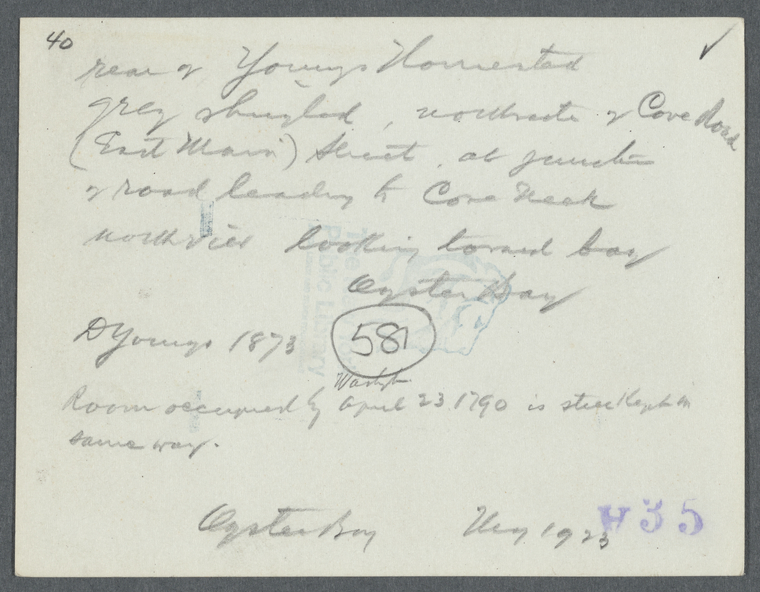 40
rear of Youngs Homested
grey shingled, northside of Cove Road
(East Main) Street, at junction
of road leading to Cove Neck
looking toward bay
Oyster Bay
DYoungs 1873
581
Washgtn
Room occupied by April 23 1790 is still kept in
same way.
Oyster Bay 1923
H35
The
Public Library